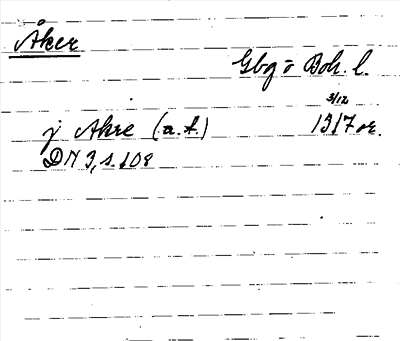 Åker
Gbg o Boh. l.
3/12
j Akre (a.f.) 1317 or.
DN 3, s. 108